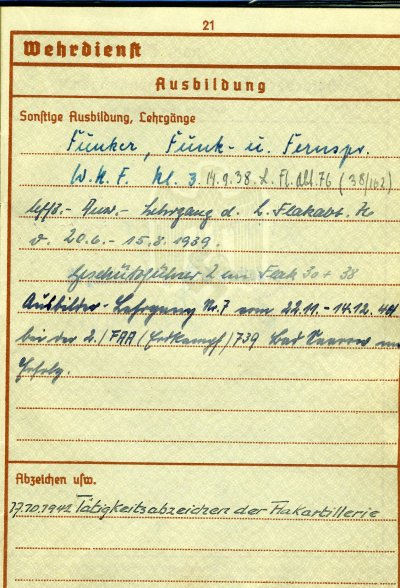 21
Wehrdienst
Ausbildung
Sonstige Ausbildung, Lehrgänge
Funker, Funk- u. Fernspr.
W.K.F. Kl. 3 14.9.38. L. Fl. Abt. 76 (38/162)
Uffz.- Anw.- Lehrgang d. L. Flakabt. 76
v. 20.6. - 15.8. 1939.
Geschützführer 2 cm Flak 30 + 38
Ausbilder- Lehrgang Nr. 7 vom 22.11. - 14.12. 44
bei der 2./FAA (Erdkampf)/739 Bad Saarow
Erfolg.
Abzeichen usw.
17.10.1942 Tätigkeitsabzeichen der Flakartillerie